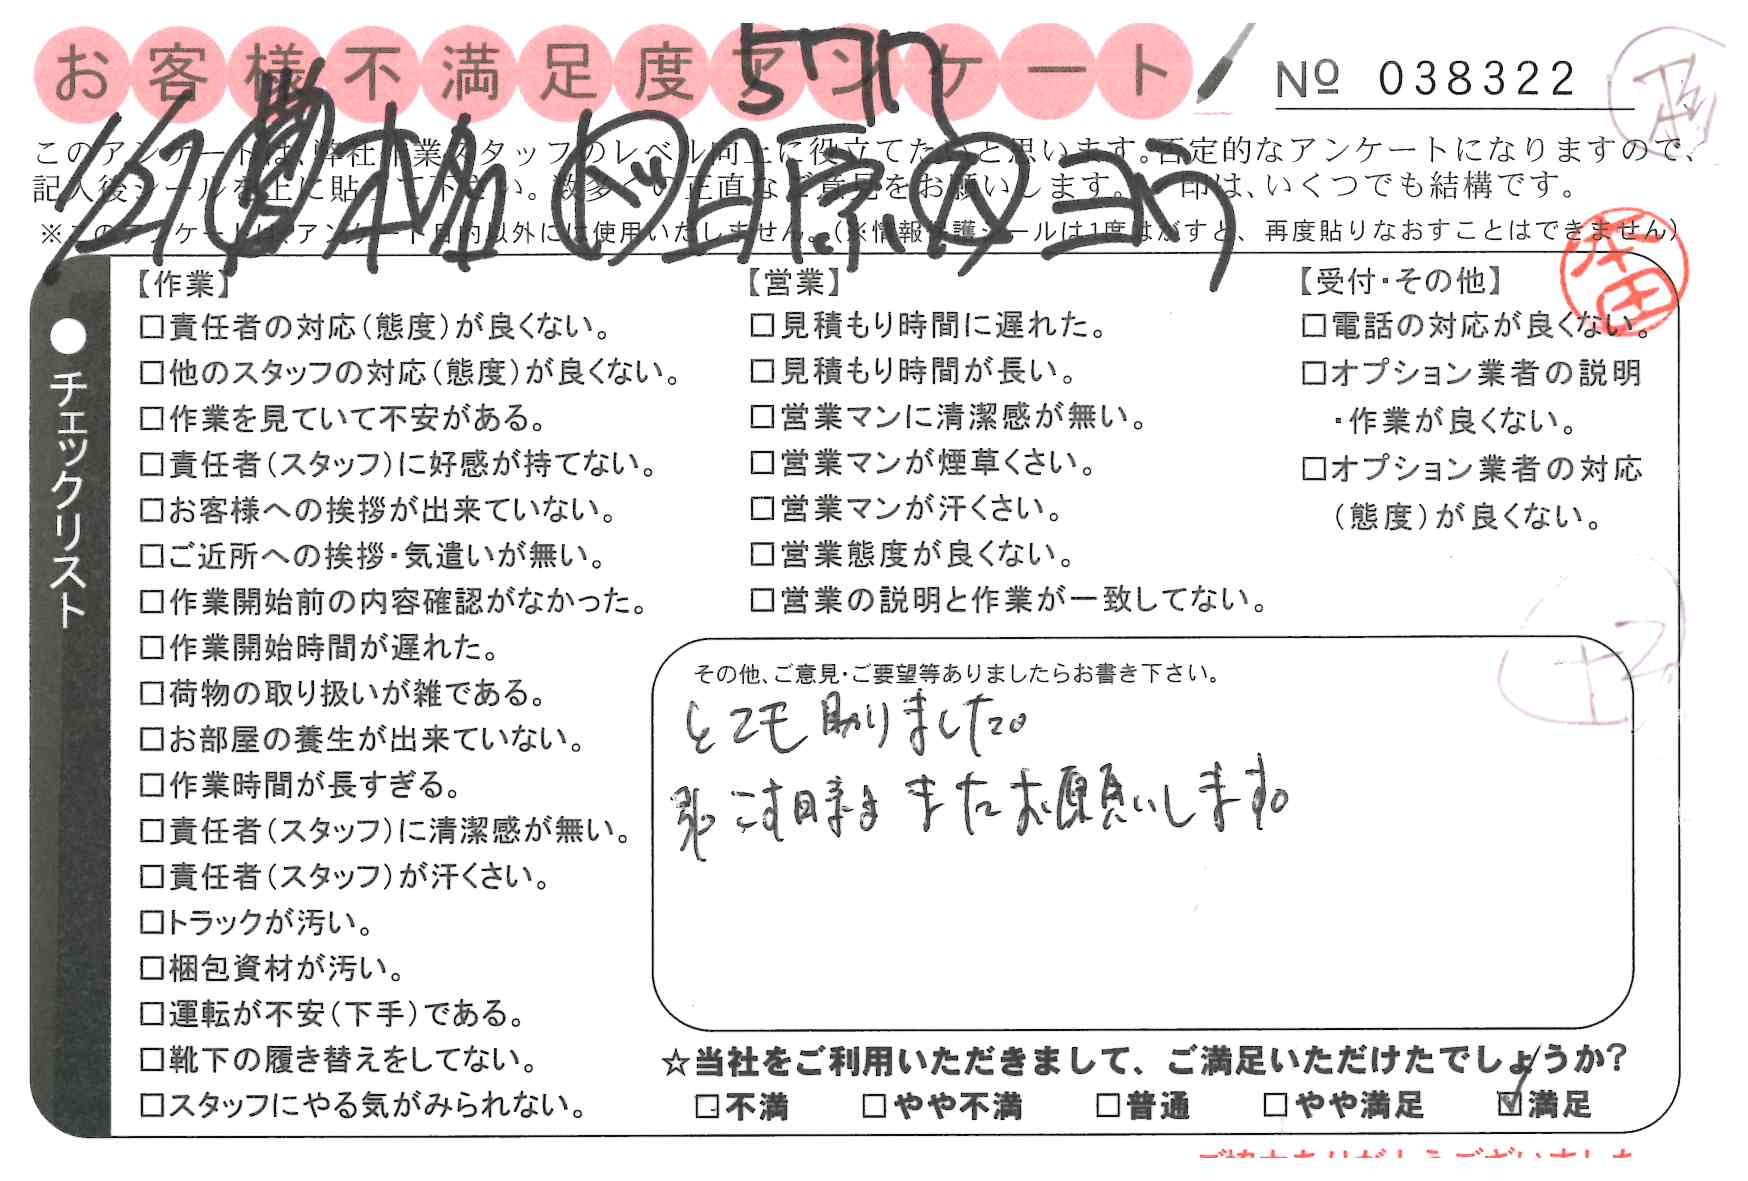 お客様不満足度アンケート
№ 038322
このアンケートは、弊社作業スタッフのレベル向上に役立てたいと思います。否定的なアンケートになりますので、
記入後シールを上に貼って下さい。数多くの正直なご意見をお願いします。 印は、いくつでも結構です。
※このアンケートは、アンケート目的以外には使用いたしません。(※情報保護シールは1度はがすと、再度貼りなおすことはできません)
●チェックリスト
【作業】
□責任者の対応(態度)が良くない。
□他のスタッフの対応(態度)が良くない。
□作業を見ていて不安がある。
□責任者(スタッフ)に好感が持てない。
□お客様への挨拶が出来ていない。
□ご近所への挨拶・気遣いが無い。
□作業開始前の内容確認がなかった。
□作業開始時間が遅れた。
□荷物の取り扱いが雑である。
□お部屋の養生が出来ていない。
□作業時間が長すぎる。
□責任者(スタッフ)に清潔感が無い。
□責任者(スタッフ)が汗くさい。
□トラックが汚い。
□梱包資材が汚い。
□運転が不安(下手)である。
□靴下の履き替えをしてない。
□スタッフにやる気がみられない。
【営業】
□見積もり時間に遅れた。
□見積もり時間が長い。
□営業マンに清潔感が無い。
□営業マンが煙草くさい。
□営業マンが汗くさい。
□営業態度が良くない。
□営業の説明と作業が一致してない。
【受付・その他】
□電話の対応が良くない。
□オプション業者の説明
・作業が良くない。
□オプション業者の対応
(態度)が良くない。
本田
その他、ご意見・ご要望等ありましたらお書き下さい。
とても助りました。
引っこす時は またお願いします。
☆当社をご利用いただきまして、ご満足いただけたでしょうか?
□不満 □やや不満 □普通 □やや満足 ☑満足
ご協力ありがとうございました